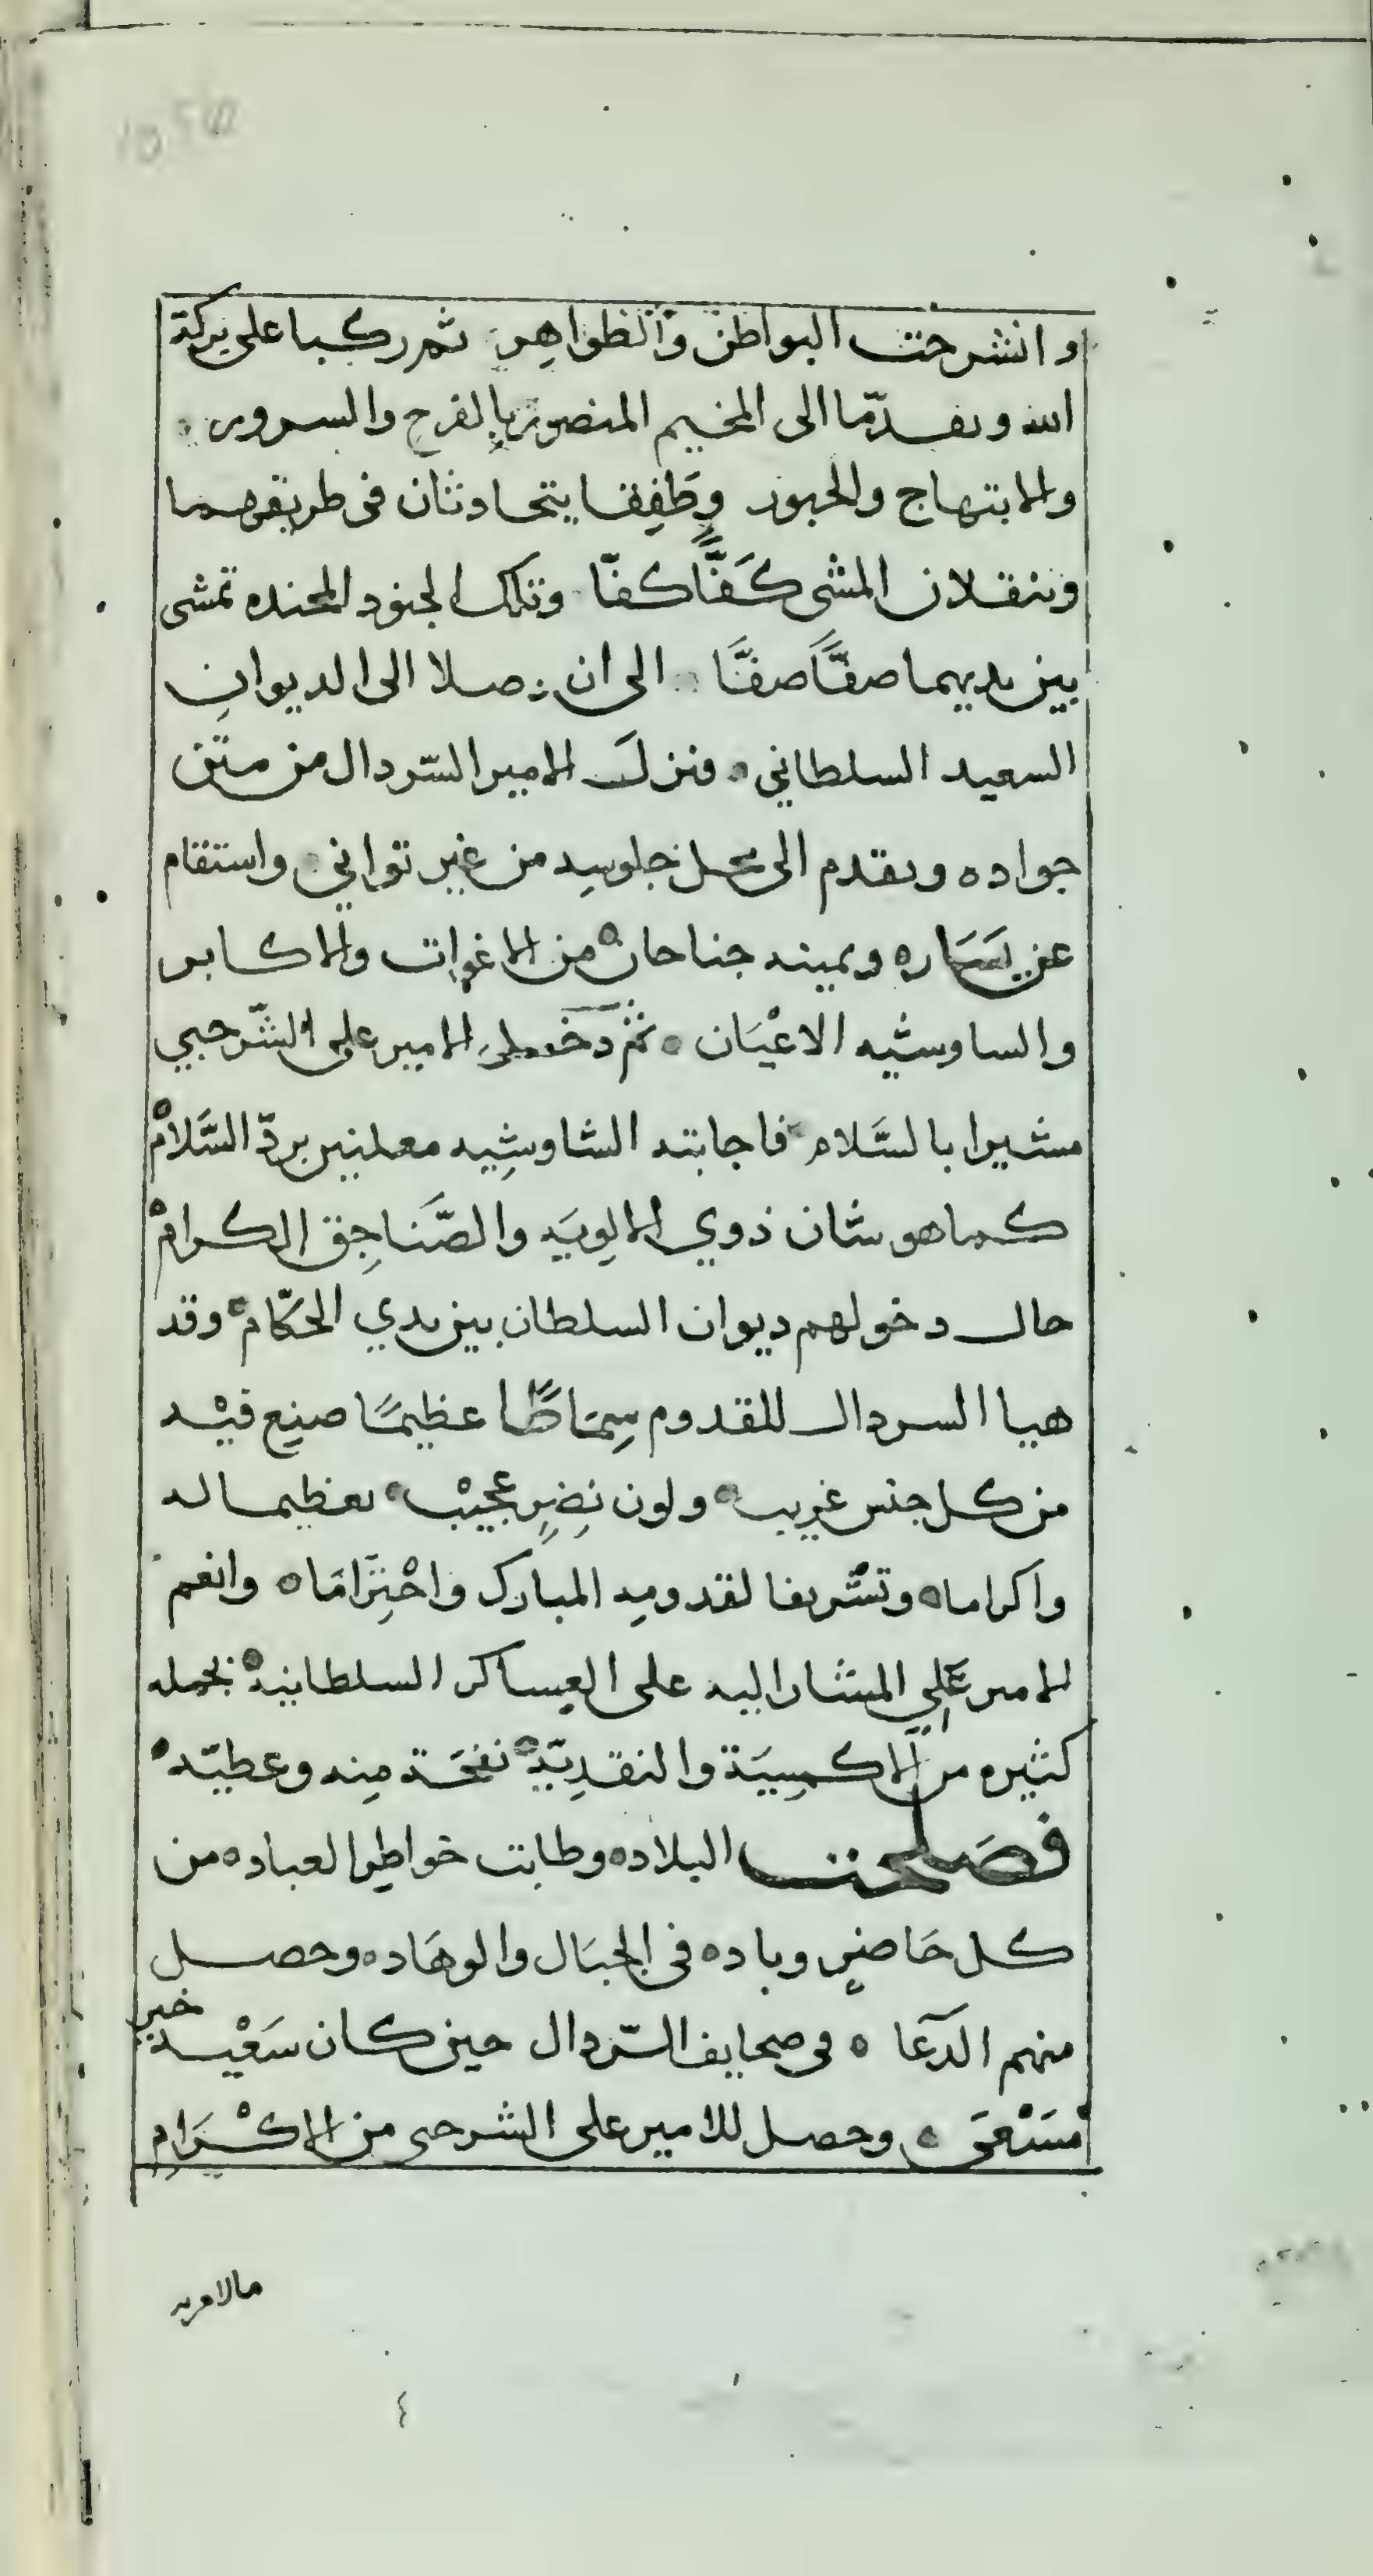 وانشرحت البواطن والظواهر ثم ركبا على بركة
الله وتقدما الى المخيم المنصور بالفرح والسرور
والابتهاج والحبور وطَفِقا يتحادثان فى طريقهما
وينقلان المشى كَفًّا كفّا وتلك الجنود المجنده تمشى
بين يديهما صفًّا صفًّا الى ان وصلا الى الديوانِ
السعيد السلطاني فنزلَ الامير السّردال من متن
جواده وتقدم الى محل جلوسِه من غير تواني واستقام
عن يَسَاره ويمينه جناحان من الاغوات والاكابر
والساوشيه الاعْيَان ثم دخل الامير على الشّرجبي
مشيرا بالسَّلام فاجابته الشاوشِيه معلنين بردّ السَّلامْ
كما هو شان ذوي الالوِيَه والصَّناجِق الكرامْ
حال دخولهم ديوان السلطان بين يدي الحكّام وقد
هيا السردال للقدوم سِمَاطًا عظيمًا صنِع فيْه
من كل جنس غريب ولون نضِيرٍ عجيبْ تعظيما له
واكراما وتشريفا لقدومِه المبارك واحْتِرَامَا وانعم
الامير عَلِي المشار اليه على العساكر السلطانيه بجمله
كثيره من الاكسِيَة والنقدِيّة نفحَة مِنه وعطيّه
فصَلحت البلاد وطابت خواطِر العباد من
كل حَاضرٍ وباد فى الجبَال والوهَاد وحصل
منهم الدّعا فى صحايف السّردال حين كان سَعْيه خير
مَسْعَى وحصل للامير على الشرجبى من الاكْرَامِ
مالامزيد
٤